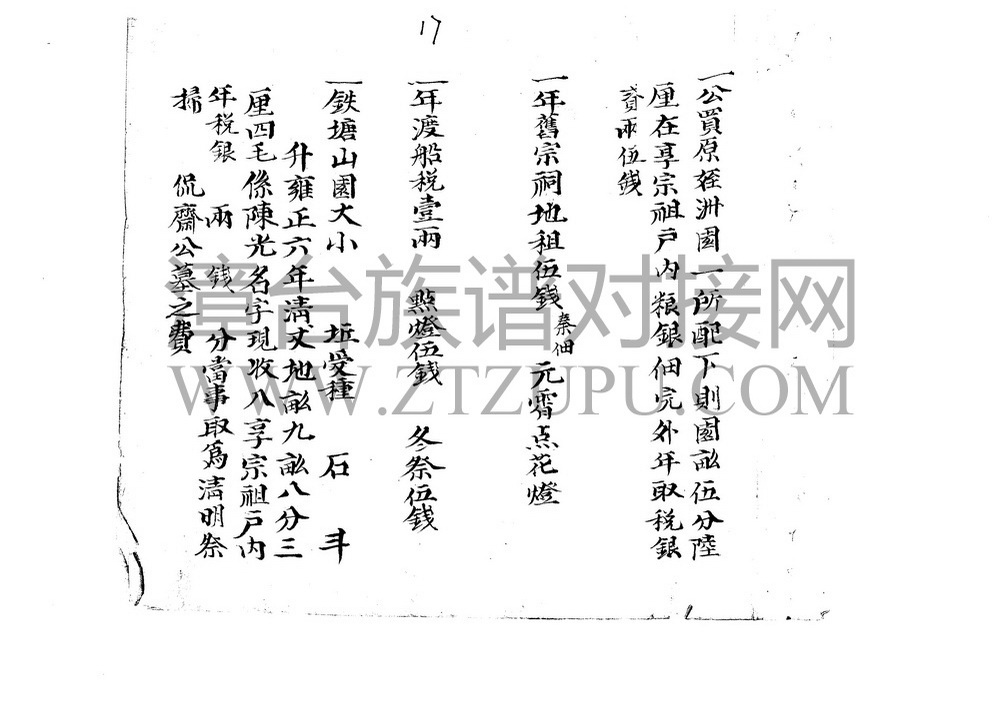 17
一公買原䂶洲園一所配下則園畝伍分陸
厘在享宗祖户内粮銀佃完外年取税銀
貳兩伍錢
一年舊宗祠地租伍錢秦佃 元霄点花燈
一年渡船税壹兩 點燈伍錢 冬祭伍錢
一鉄塘山園大小 坵受種 石 斗
升雍正六年清丈地畝九畝八分三
厘四毛係陳光名字現收八享宗祖户内
年税銀 兩 錢 分當事取爲清明祭
掃 侃齋公墓之費
漳台族谱对接网
WWW.ZTZUPU.COM